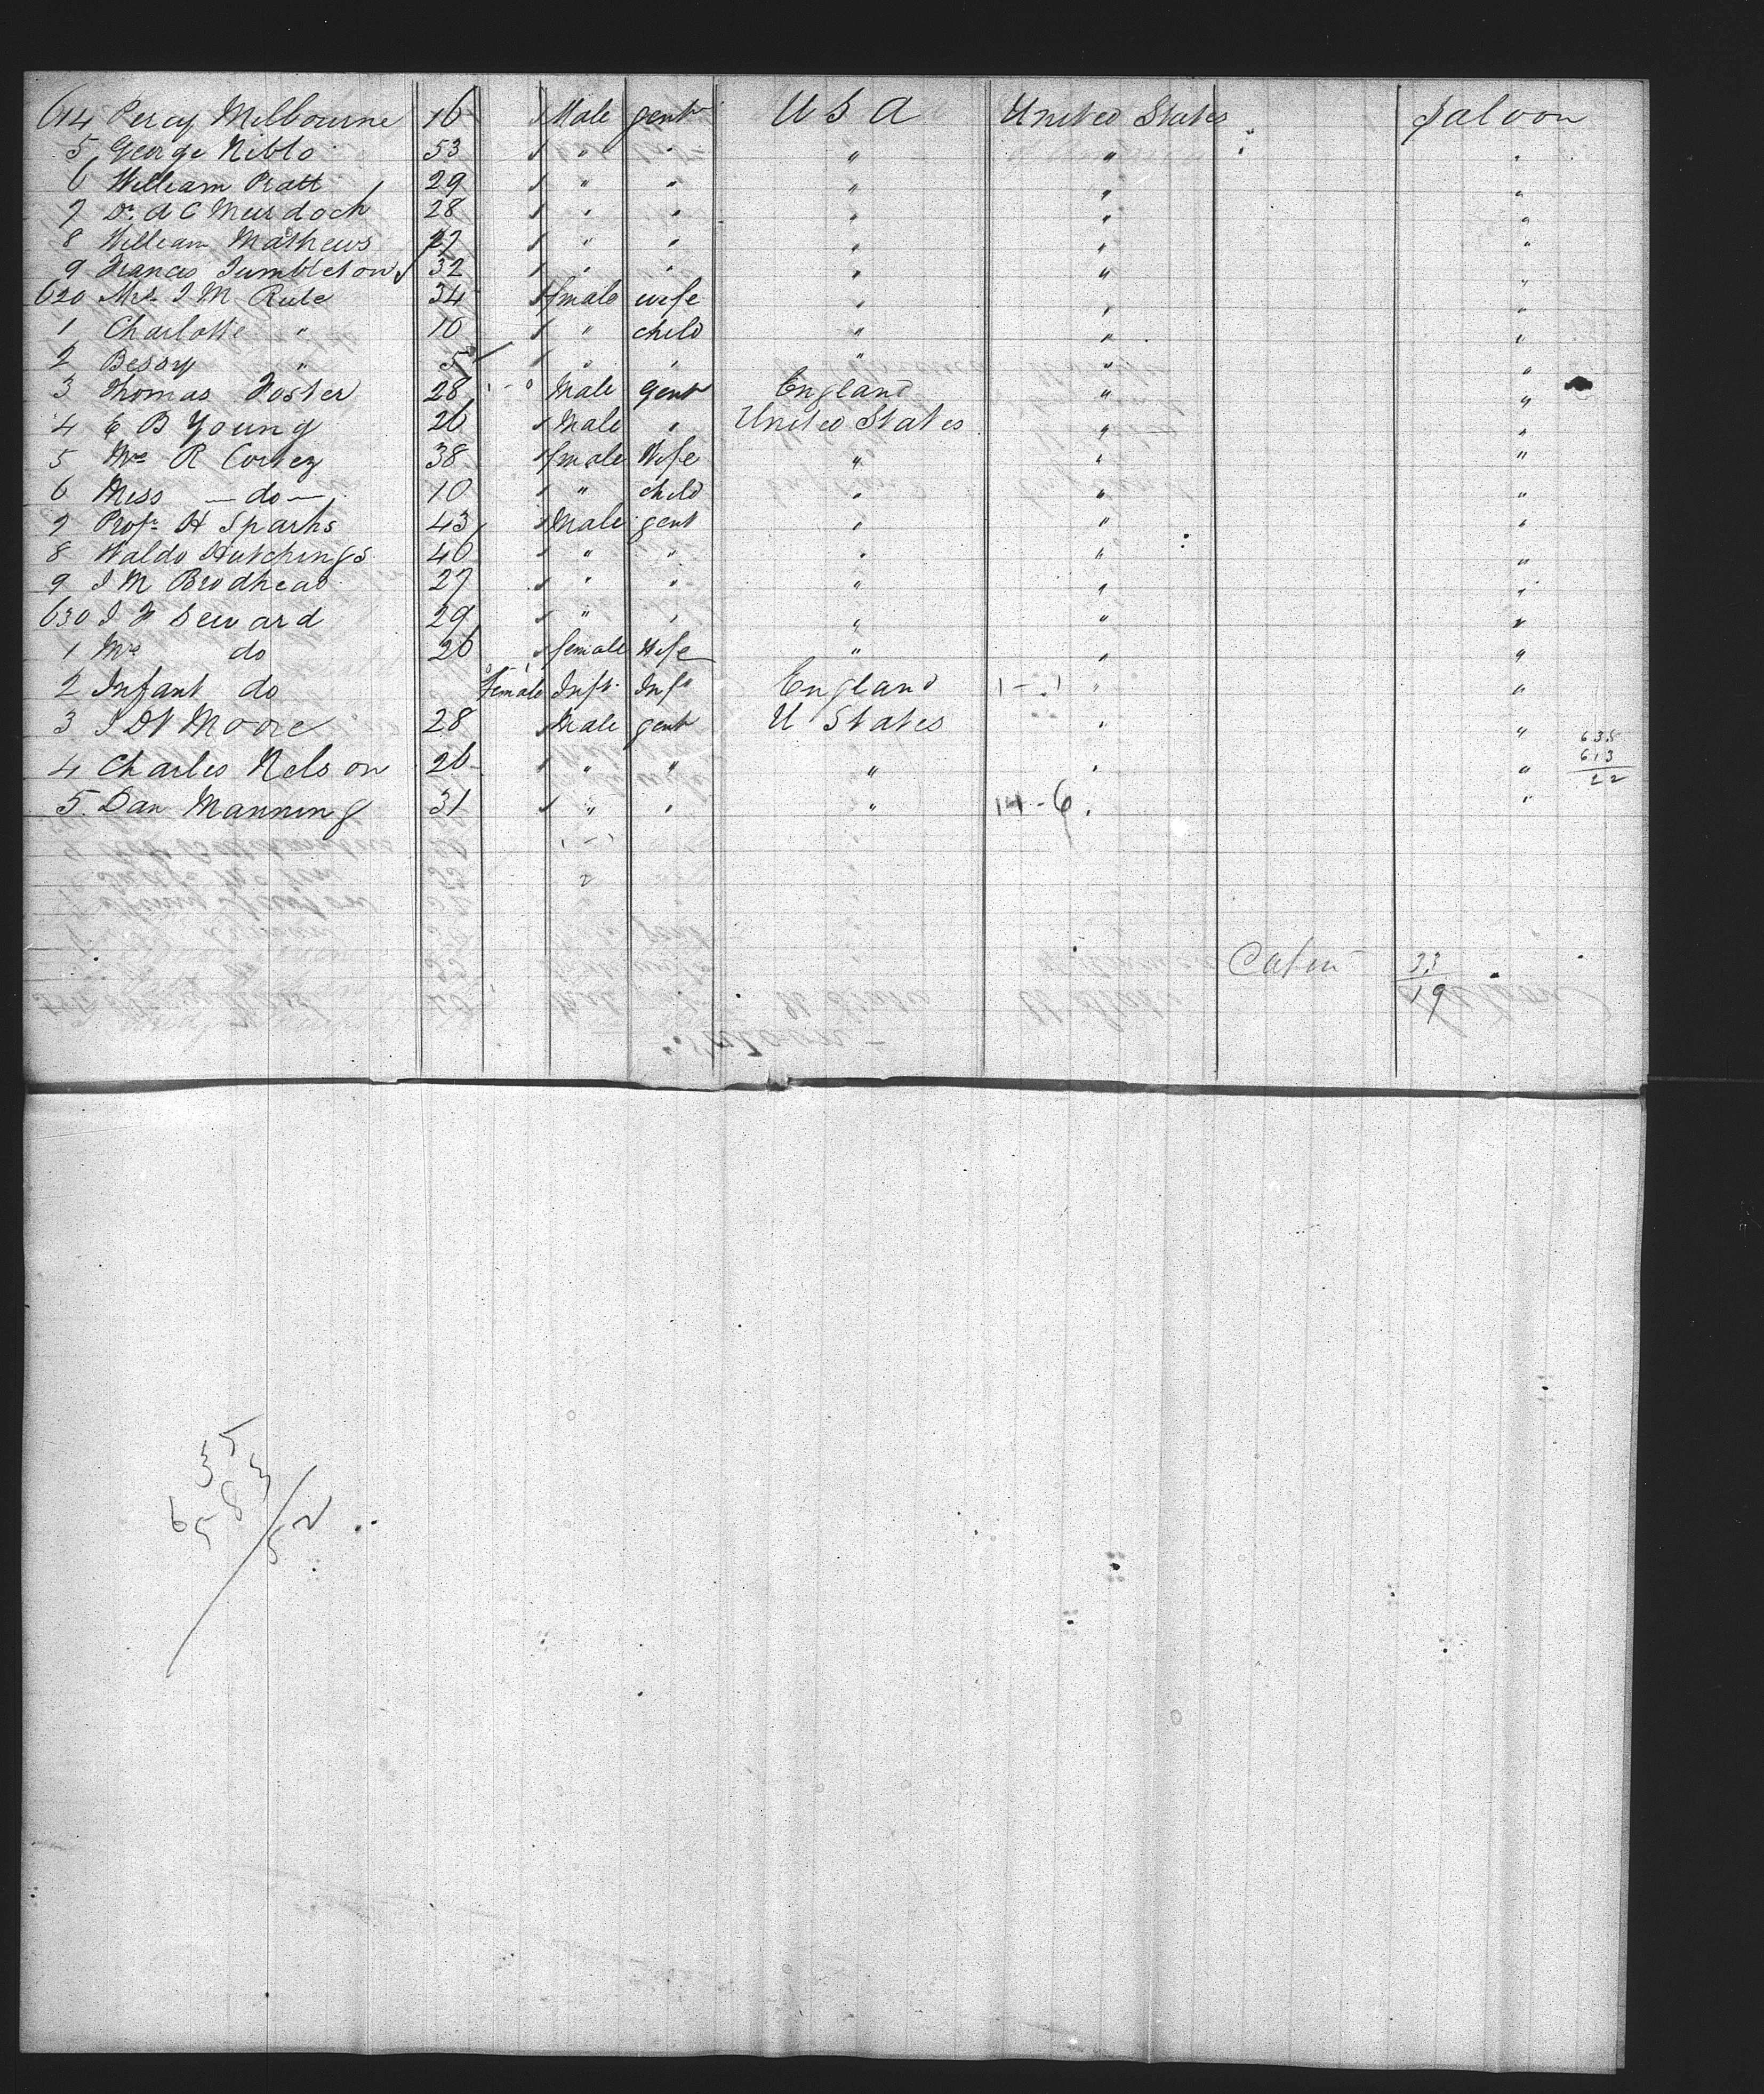 614 Percy Milbourne 16 Male gent U S A United States Saloon
5 George Niblo 53 " " " " "
6 William Pratt 29 " " " " "
7 Dr. A C Murdoch 28 " " " " "
8 William Mathews 27 " " " " "
9 Francis Tumbleton 32 " " " " "
620 Mrs I M Rule 34 female wife " " "
1 Charlotte " 10 " child " " "
2 Bessy " 5 " " " " "
3 Thomas Foster 28 Male gent England " "
4 E B Young 26 Male " United States " "
5 Mrs R Cortez 38 female Wife " " "
6 Miss — do — 10 " child " " "
7 Profr H Sparks 43 Male gent " " "
8 Waldo Hutchings 40 " " " " "
9 I M Brodhead 27 " " " " "
630 I F Seward 29 " " " " "
1 Mrs do 26 female Wife " " "
2 Infant do female Inft. Inft England 1-1 " "
3 I W Moore 28 Male gent U States " "
638
613
22
4 Charles Nelson 26 " " " " "
5 Dan Manning 31 " " " 14-6 " "
Cabin 33
19